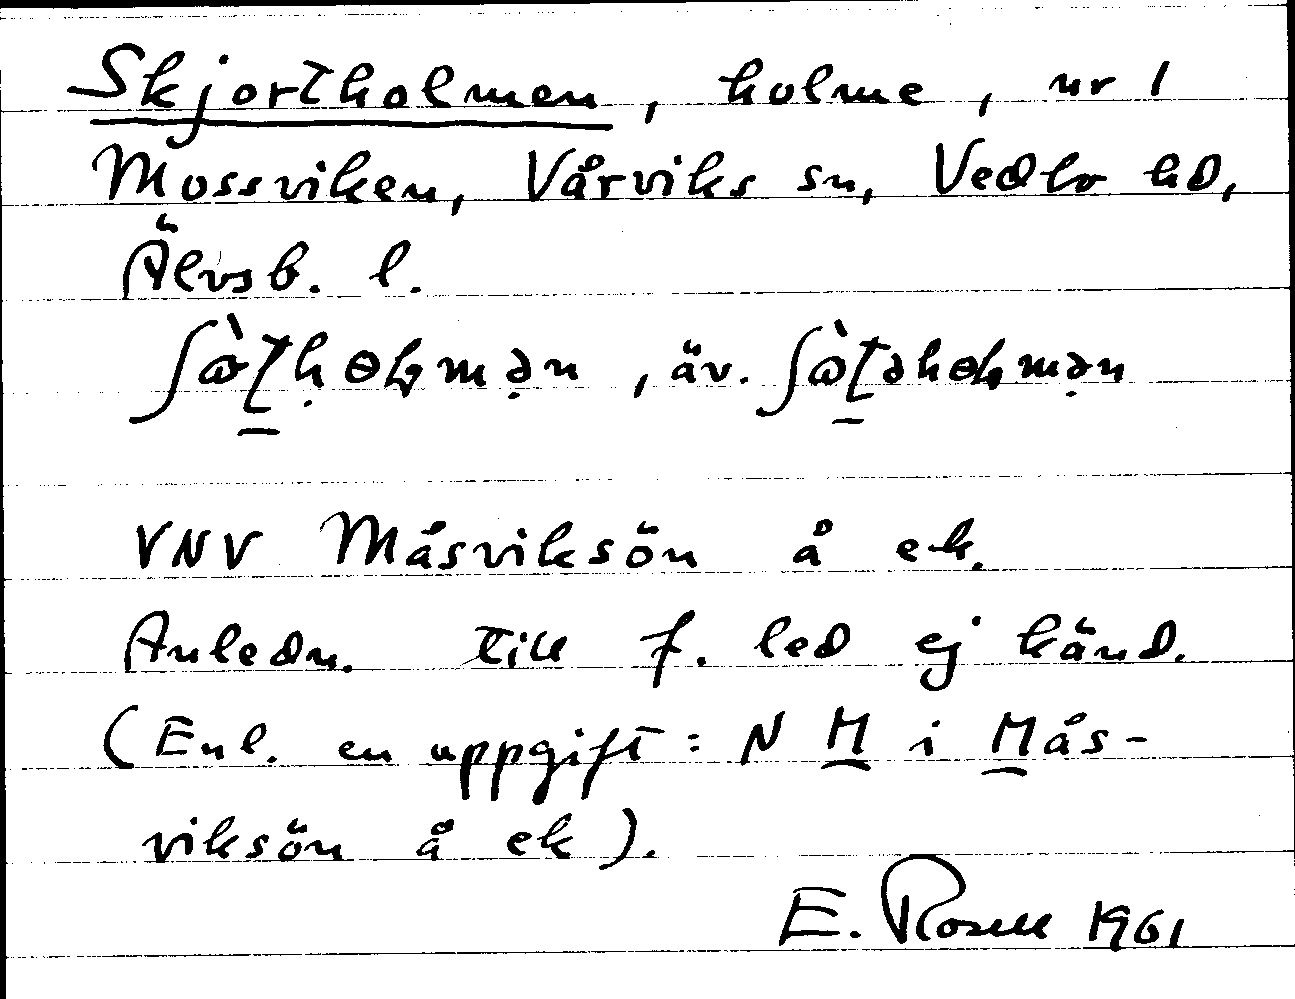 Skjortholmen, holme, nr 1
Mossviken, Vårviks sn, Vedbo hd,
Älvsb. l.
, äv.
VNV Måsviksön å ek.
Anledn. till f. led ej känd.
(Enl. en uppgift: N M i Mås-
viksön å ek).
E. Rosell 1961